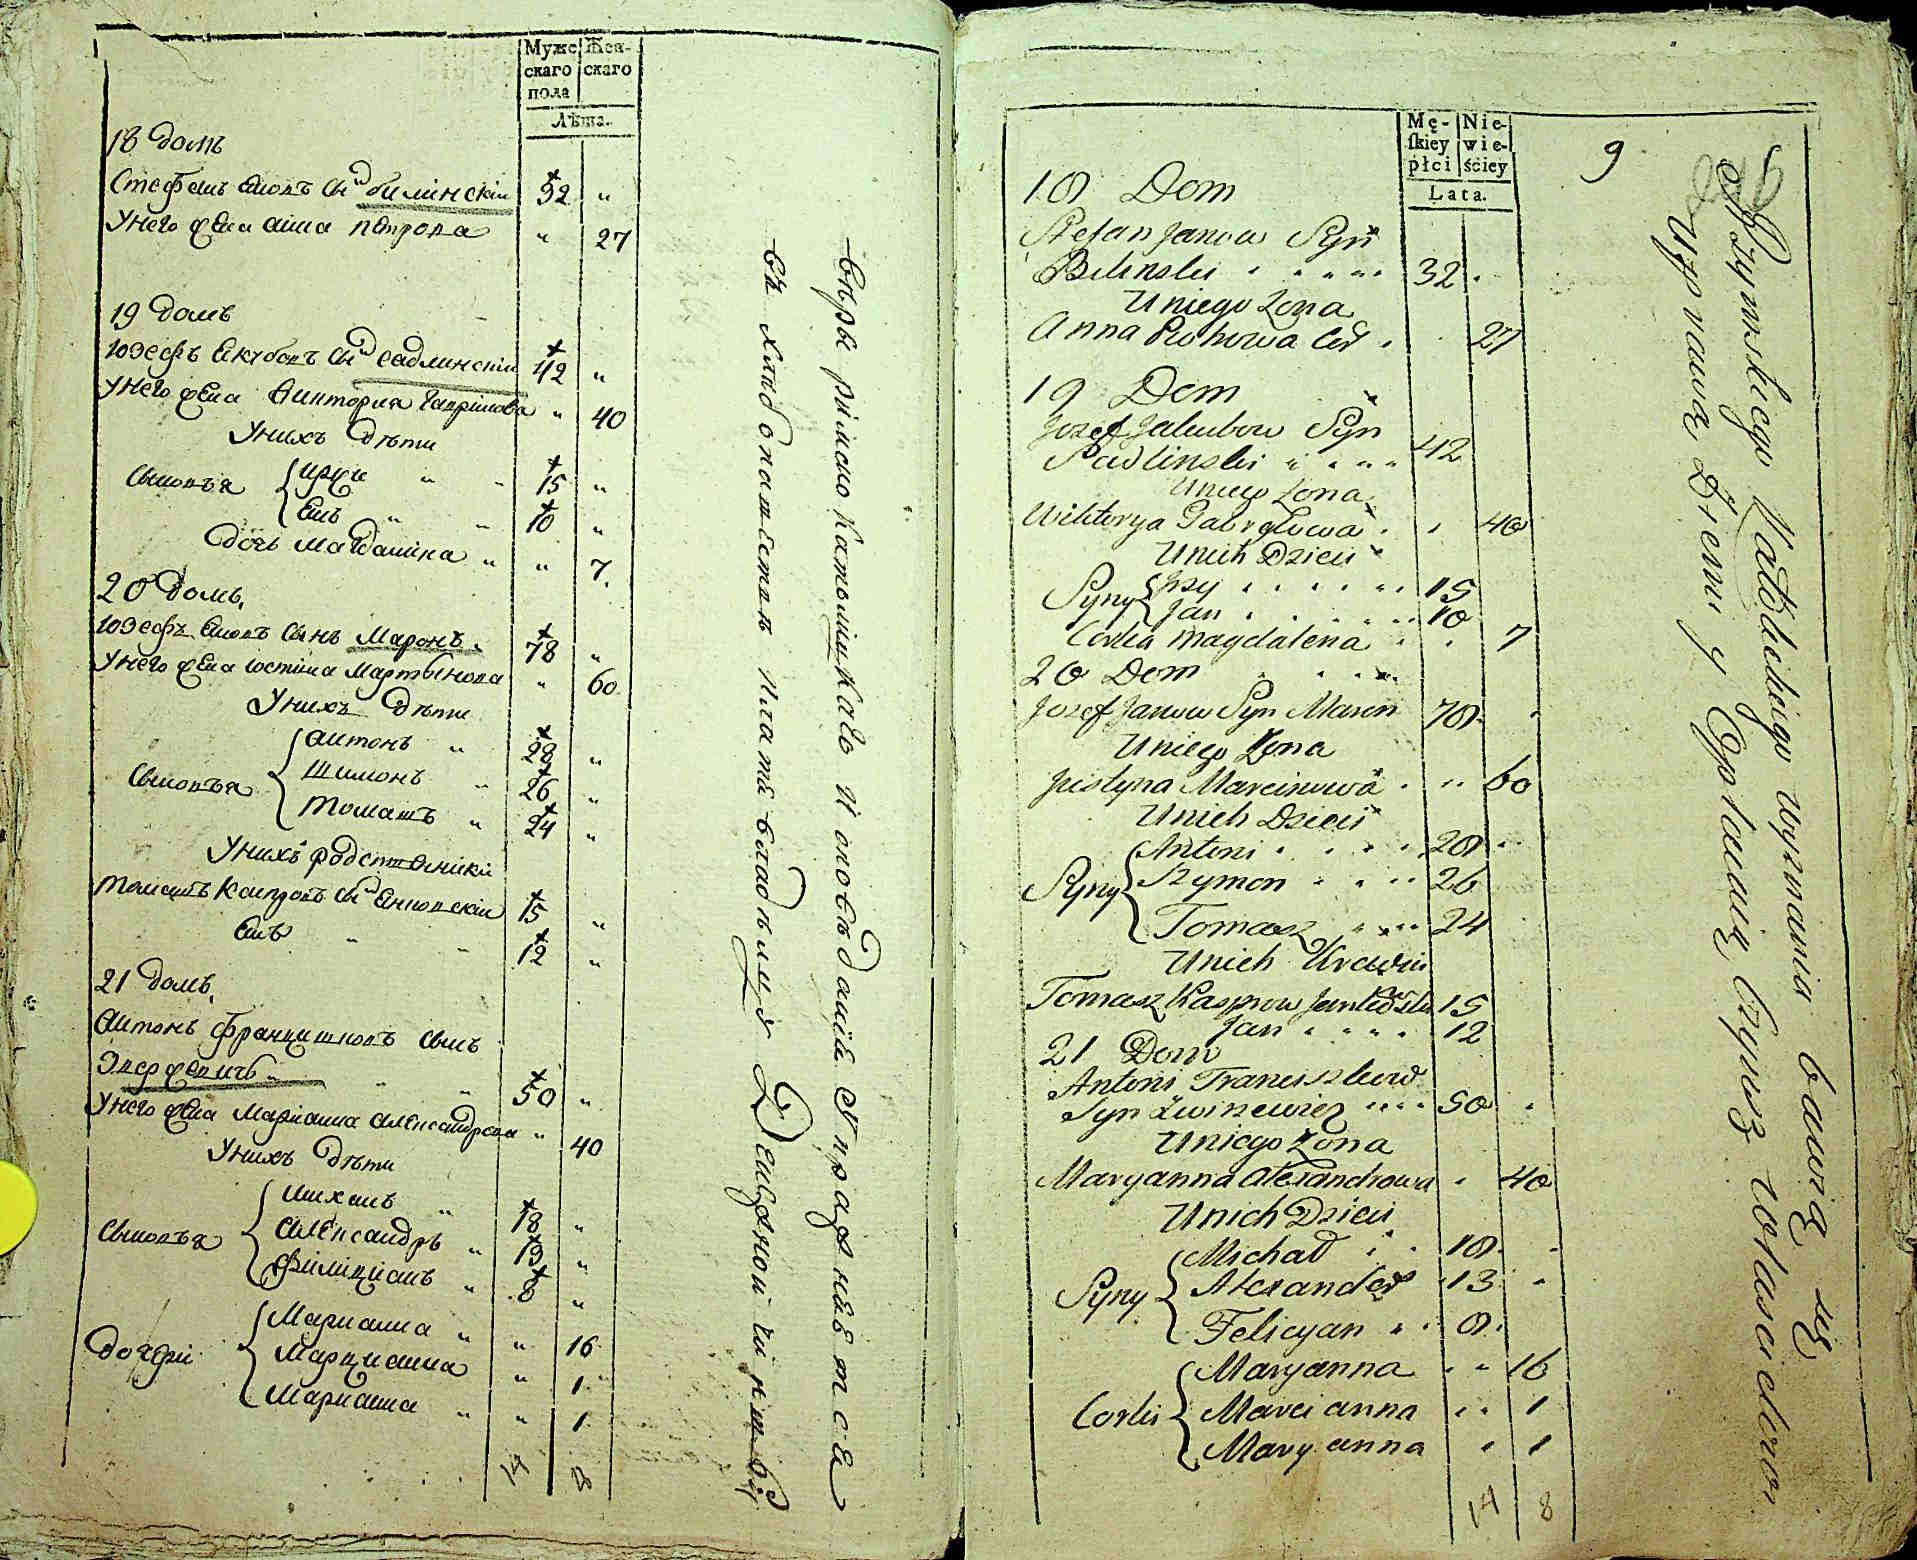 Муже
скаго
пола
Жен-
скаго
Лѣта.
18 домъ
Стефанъ Яновъ Сынъ билинскій 32 "
Унего жена анна петрова " 27
19 домъ
Юзефъ Якубовъ Сынъ садлинскій 42 "
Унего жена Викторія Гаврилова " 40
Унихъ дѣти
Сыновья Ян " " 10 "
дочь Магдалина " " 7.
20 домъ,
Юзефъ Яновъ Сынъ Маронъ. 78 "
Унего жена юстина Мартынова " 60.
Унихъ дѣти
антонъ " 28 "
Сыновья шимонъ " 26 "
томашъ " 24 "
Унихъ родственники
томашъ Каспровъ Сынъ Янковскій 15 "
Янъ " " 12 "
21 домъ,
антонъ францишковъ сынъ
50 "
Унего жена Маріанна александрова " 40
Унихъ дѣти
михалъ " 18 "
Сыновья александръ " 13 "
филиціанъ " 8 "
Марианна " " 16
дочери Марциана " 1
Марианна " " 1
14 8
вѣры римско католицкаго исповѣданія упражняется
въ хлѣбопашествѣ
Mę-
skiey
płci
Nie-
wie-
ściey
Lata.
9
18 Dom
Stefan Janow Syn
Bilinski 32
Uniego Zona
Anna 27
19 Dom
Jozef Jakubow Syn
Sadlinski 42
Uniego Zona
Wiktorya Gabryelowa 40
Unich Dzieci
Syny Jerzy 15
Jan 10
Corka Magdalena 7
20 Dom
Jozef Janow Syn Maron 78
Uniego Zona
Justyna Marcinowa 60
Unich Dzieci
Antoni 28
Syny Szymon 26
Tomasz 24
Unich Krewni
Tomasz Kasprow Jankowski 15
Jan 12
21 Dom
Antoni Franciszkow
Syn 50
Uniego Zona
Maryanna Alexandrowa 40
Unich Dzieci
Michał 18
Syny Alexander 13
Felicyan 8
Maryanna 16
Corki Marcianna 1
Maryanna 1
14 8
Rzymskiego Katolickiego wyznania bawią się
Uprawą Ziemi y Opłacaią Czynsz